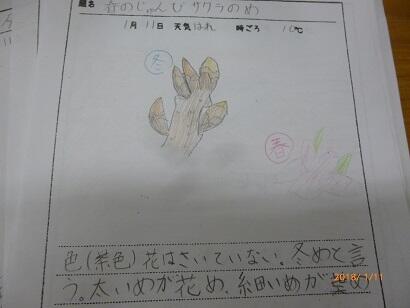 題名 春のじゅんび サクラのめ
1月11日 天気 はれ 時ごろ 10℃
冬
春
色(茶色)花はさいていない。冬めと言
う。太いめが花め、細いめが葉め
2018/1/11